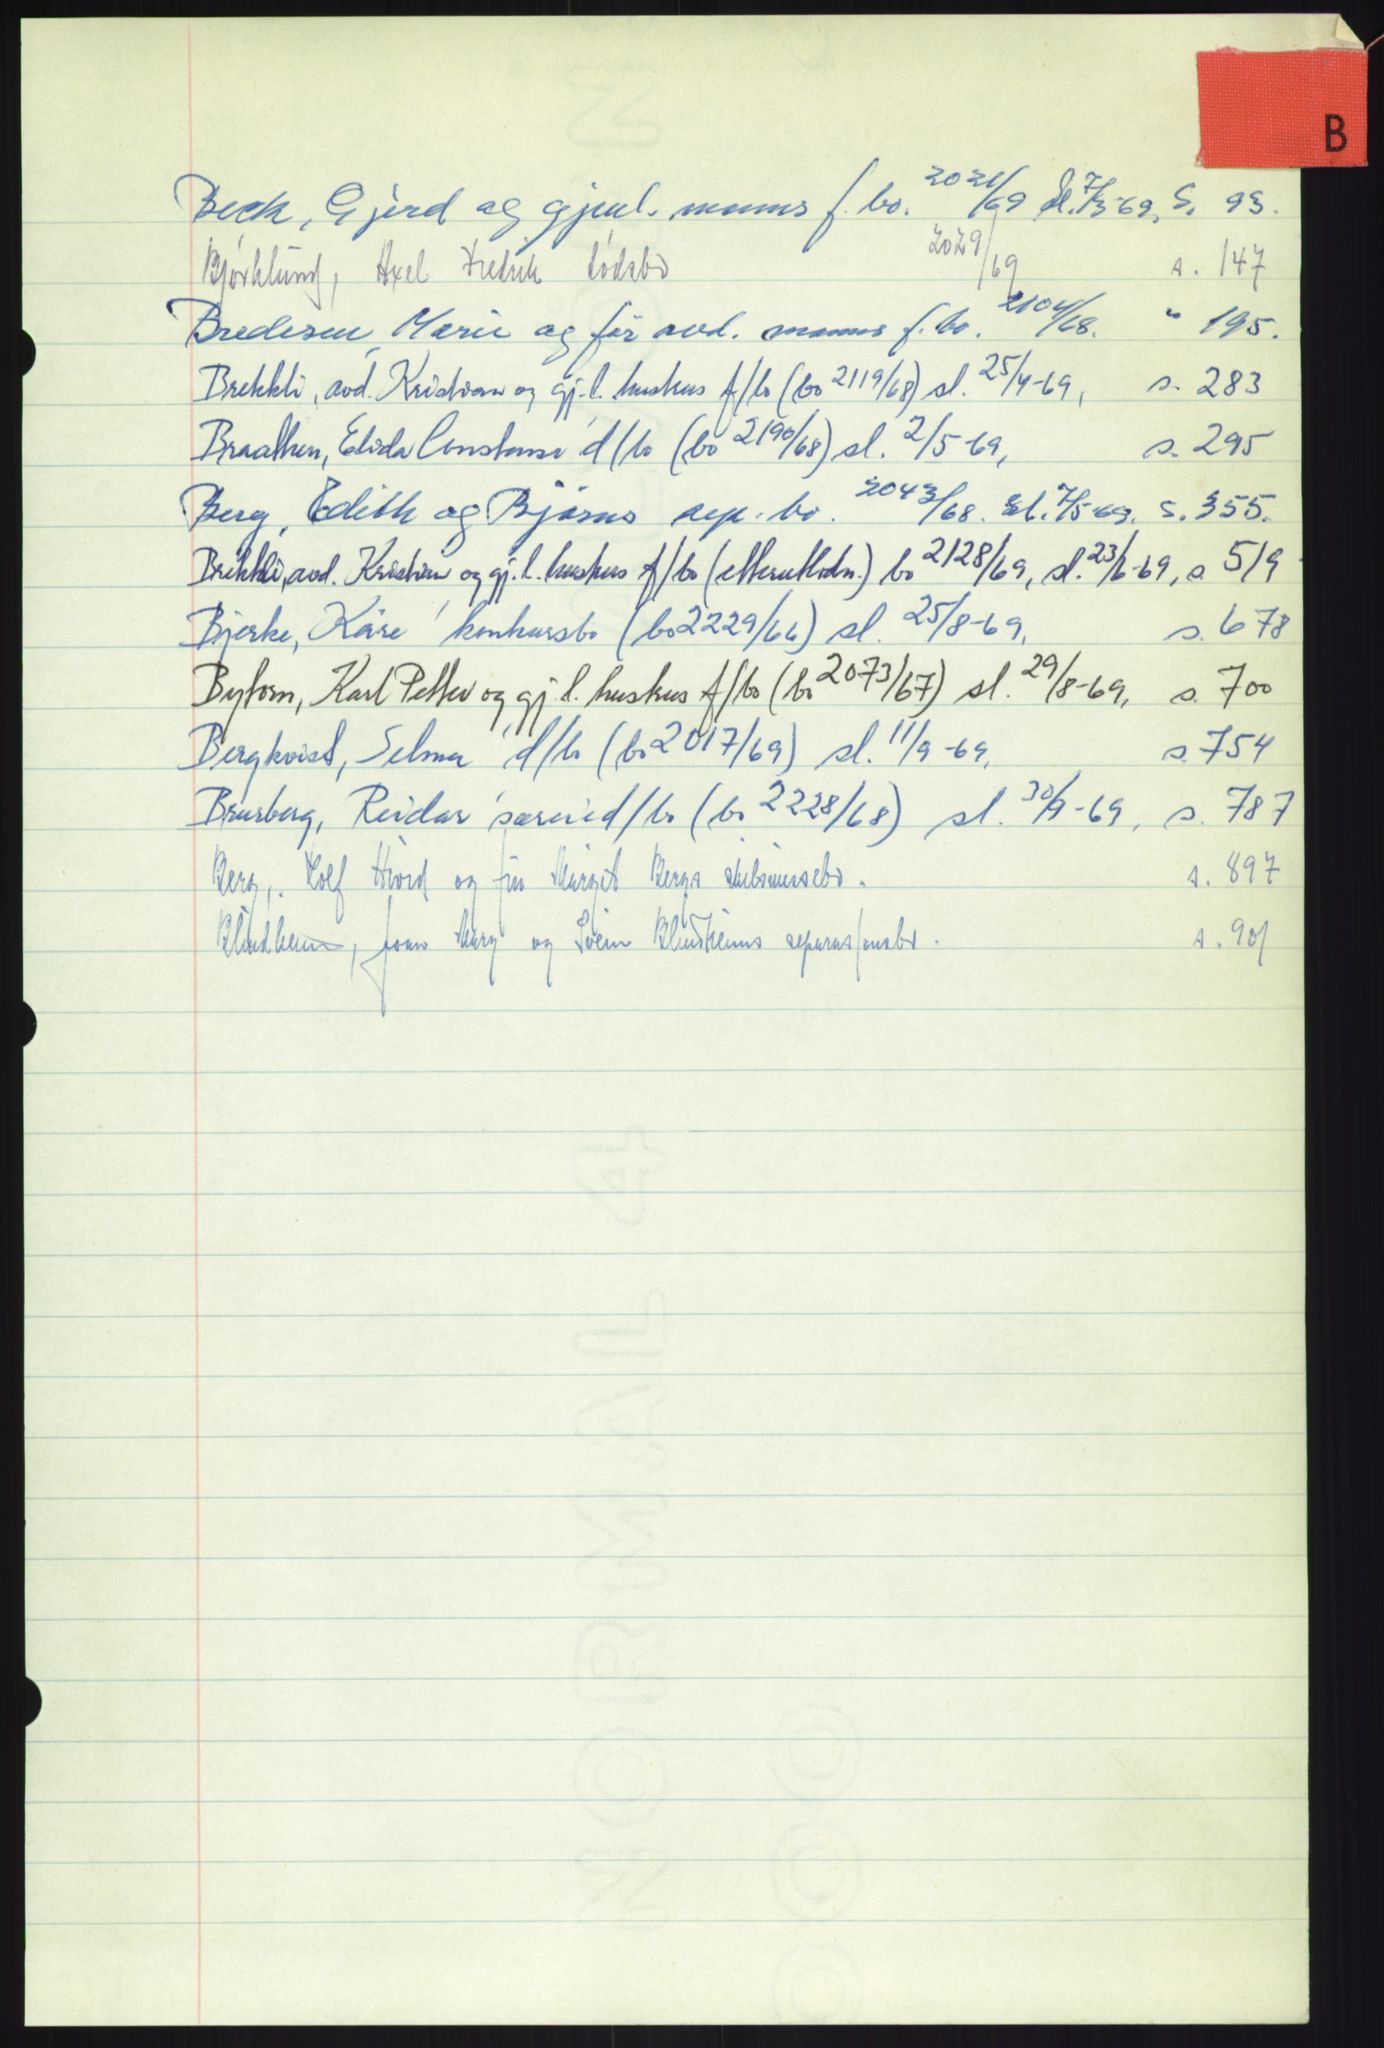 B
Beck, Gjerd og gjenl. manns f. bo. 2021/69 Sl. 7/3-69, S. 93.
Bjørklund, Axel Fredrik dødsbo 2029/69 s. 147
Bredesen, Marie og før avd. manns f. bo. 2104/68. " 195.
Brekkli, avd. Kristian og gj. l. huskus f/bo (bo 2119/68) sl. 25/4-69, s. 283
Braathen, Elida Constanse d/bo (bo 2190/68) sl. 2/5-69, s. 295
Berg, Edith og Bjørns sep. bo. 2043/68. Sl. 7/5-69. S. 355.
Brekkli, avd. Kristian og gj. l. huskus f/bo (etterutlodn.) bo 2128/69, sl. 23/6-69, s 519
Bjerke, Kåre konkursbo (bo 2229/66) sl. 25/8-69, s. 678
Byforn, Karl Petter og gj. l. huskus f/bo (bo 2073/67) sl. 29/8-69, s. 700
Bergkvist, Selma d/bo (bo 2017/69) sl. 11/9-69, s. 754
Brusberg, Reidar særeied/bo (bo 2228/68) sl. 30/9-69, s. 787
Berg, Rolf Hård og fru Margit Bergs skilsmissebo. s. 897
Blindheim, Mary og Svein Blindheims separasjonsbo. s. 901
NORMAL 4